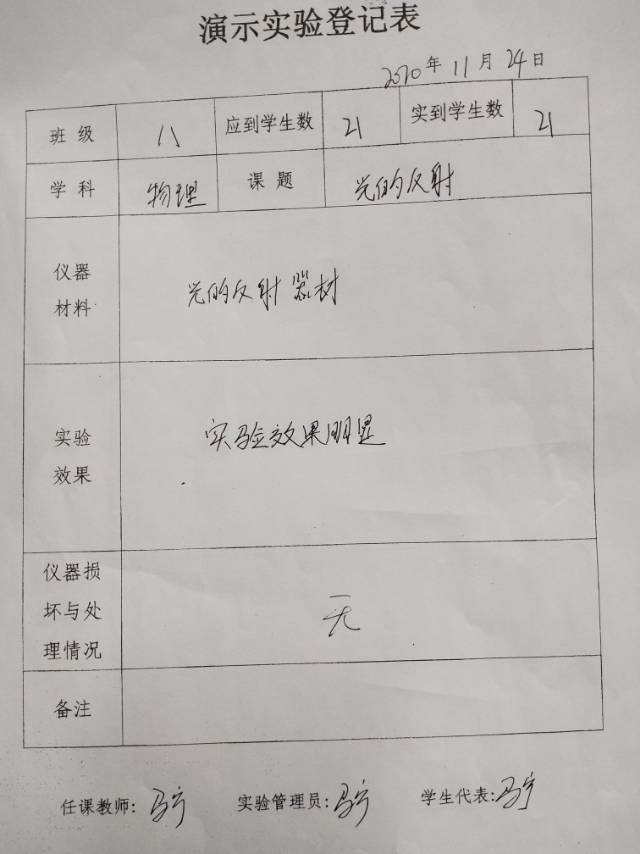 演示实验登记表
2020年11月24日
班级 八 应到学生数 21 实到学生数 21
学科 物理 课题 光的反射
仪器
材料
光的反射器材
实验
效果
实验效果明显
仪器损
坏与处
理情况
无
备注
任课教师: 马宁 实验管理员: 马宁 学生代表: 马宁